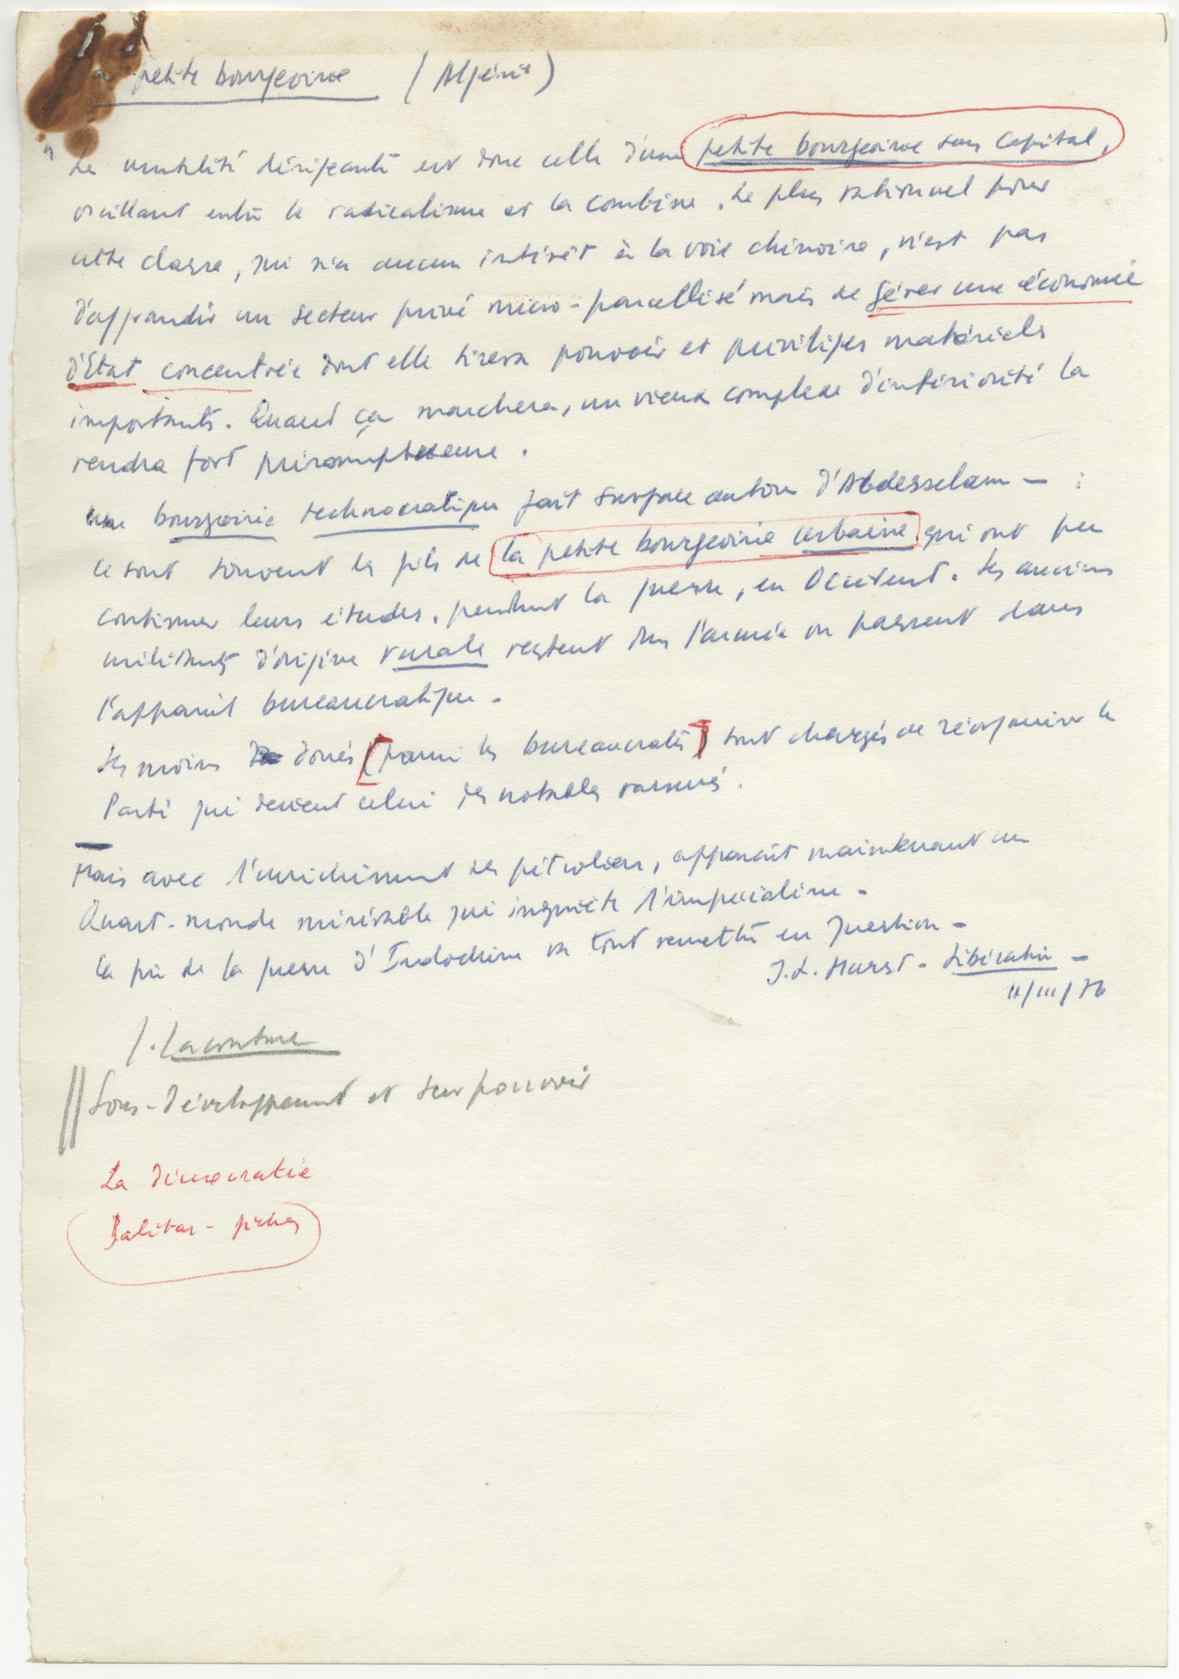 petite bourgeoisie (Algérie)
" La mentalité dirigeante est donc celle d'une petite bourgeoisie sans capital,
oscillant entre le radicalisme et la combine. Le plus rationnel pour
cette classe, qui n'a aucun intérêt à la voie chinoise, n'est pas
d'agrandir un secteur privé micro-parcellisé mais de gérer une économie
d'Etat concentrée dont elle tirera pouvoir et privilèges matériels
importants. Quand ça marchera, un vieux complexe d'infériorité la
rendra fort présomptueuse.
une bourgeoisie technocratique fait surface autour d'Abdesselam - :
ce sont souvent les fils de la petite bourgeoisie urbaine qui ont pu
continuer leurs études, pendant la guerre, en Occident. Les anciens
militants d'origine rurale restent dans l'armée ou passent dans
l'appareil bureaucratique.
Les moins doués [parmi les bureaucrates] sont chargés de réorganiser le
Parti qui devient celui des notables rassurés.
Mais avec l'enrichissement des pétroliers, apparaît maintenant un
Quart-monde misérable qui inquiète l'impérialisme.
La fin de la guerre d'Indochine va tout remettre en question -
J.L. Hurst - Libération -
11/III/76
J. Lacouture
Sous-développement et sur pouvoir
La démocratie